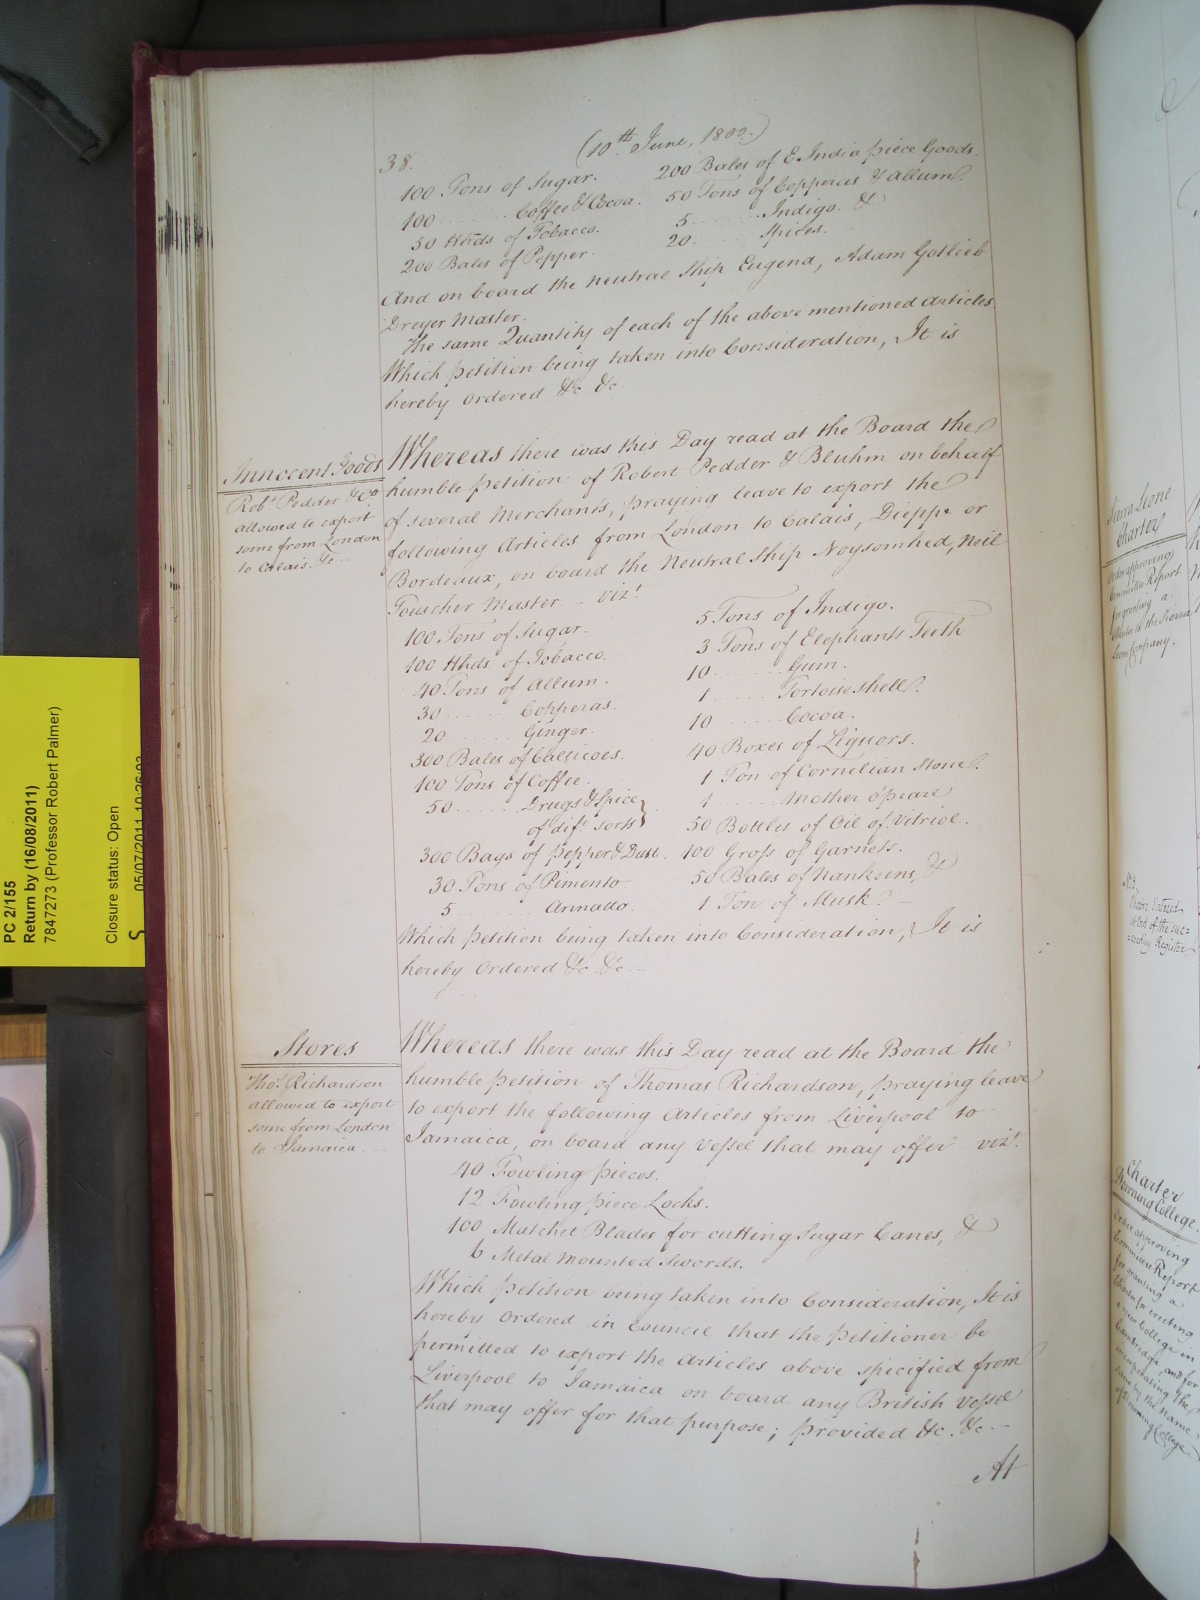 38.
(10th June, 1800.)
100 Tons of Sugar. 200 Bales of E. India piece Goods.
100 ...... Coffee & Cocoa. 50 Tons of Copperas & Allum.
50 Hhds of Tobacco. 5 ...... Indigo. &
200 Bales of Pepper. 20. ...... Spices.
And on board the Neutral Ship Eugend, Adam Gotlieb
Dreyer Master.
The same Quantity of each of the above mentioned Articles.
Which petition being taken into Consideration, It is
hereby Ordered &c &c.
Innocent Goods
Robt. Pedder & Co.
allowed to export
some from London
to Calais. &c —
Whereas there was this Day read at the Board the
humble petition of Robert Pedder & Bluhm on behalf
of several Merchants, praying leave to export the
following Articles from London to Calais, Dieppe or
Bordeaux, on board the Neutral Ship Noysomhed, Neil
Touscher Master — vizt.
100 Tons of Sugar. 5 Tons of Indigo.
100 Hhds of Tobacco. 3 Tons of Elephants Teeth
40 Tons of Allum. 10 ...... Gum.
30 ...... Copperas. 1 ...... Tortoiseshell.
20 ...... Ginger. 10 ...... Cocoa.
300 Bales of Callicoes. 40 Boxes of Liquors.
100 Tons of Coffee. 1 Ton of Cornelian Stone.
50 ...... Drugs & Spice 1 ...... Mother o'pearl
of dift. sorts 50 Bottles of Oil of Vitriol.
300 Bags of Pepper & Dust. 100 Gross of Garnets.
30 Tons of Pimento 50 Bales of Nankeens, &
5 ...... Annatto. 1 Ton of Musk. —
Which petition being taken into Consideration, It is
hereby Ordered &c. &c. —
Stores
Thos. Richardson
allowed to export
some from London
to Jamaica. —
Whereas there was this Day read at the Board the
humble petition of Thomas Richardson, praying leave
to export the following Articles from Liverpool to
Jamaica, on board any Vessel that may offer vizt.
40 Fowling pieces.
12 Fowling piece Locks.
100 Matchet Blades for cutting Sugar Canes, &
6 Metal mounted Swords.
Which petition being taken into Consideration, It is
hereby Ordered in Council that the Petitioner be
permitted to export the Articles above specified from
Liverpool to Jamaica on board any British Vessel
that may offer for that purpose; provided &c. &c. —
At
PC 2/155
Return by (16/08/2011)
7847273 (Professor Robert Palmer)
Closure status: Open
05/07/2011 10:26:02
S
Sierra Leone
Charter
Order approving
Committee Report
for granting a
Charter to the Sierra
Leone Company.
Charter
Downing College.
Order approving
Committee Report
for granting a
Charter for erecting
a new College in
Cambridge, and for
incorporating the
same by the Name
of Downing College.